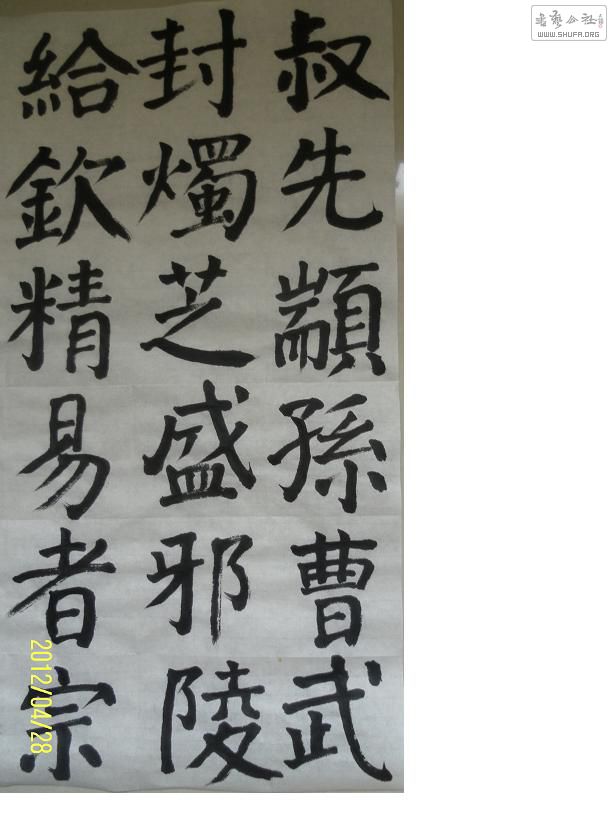 叔先顓孫曹武
封燭芝盛邪陵
給欽精易者宗
2012/04/28
WWW.SHUFA.ORG